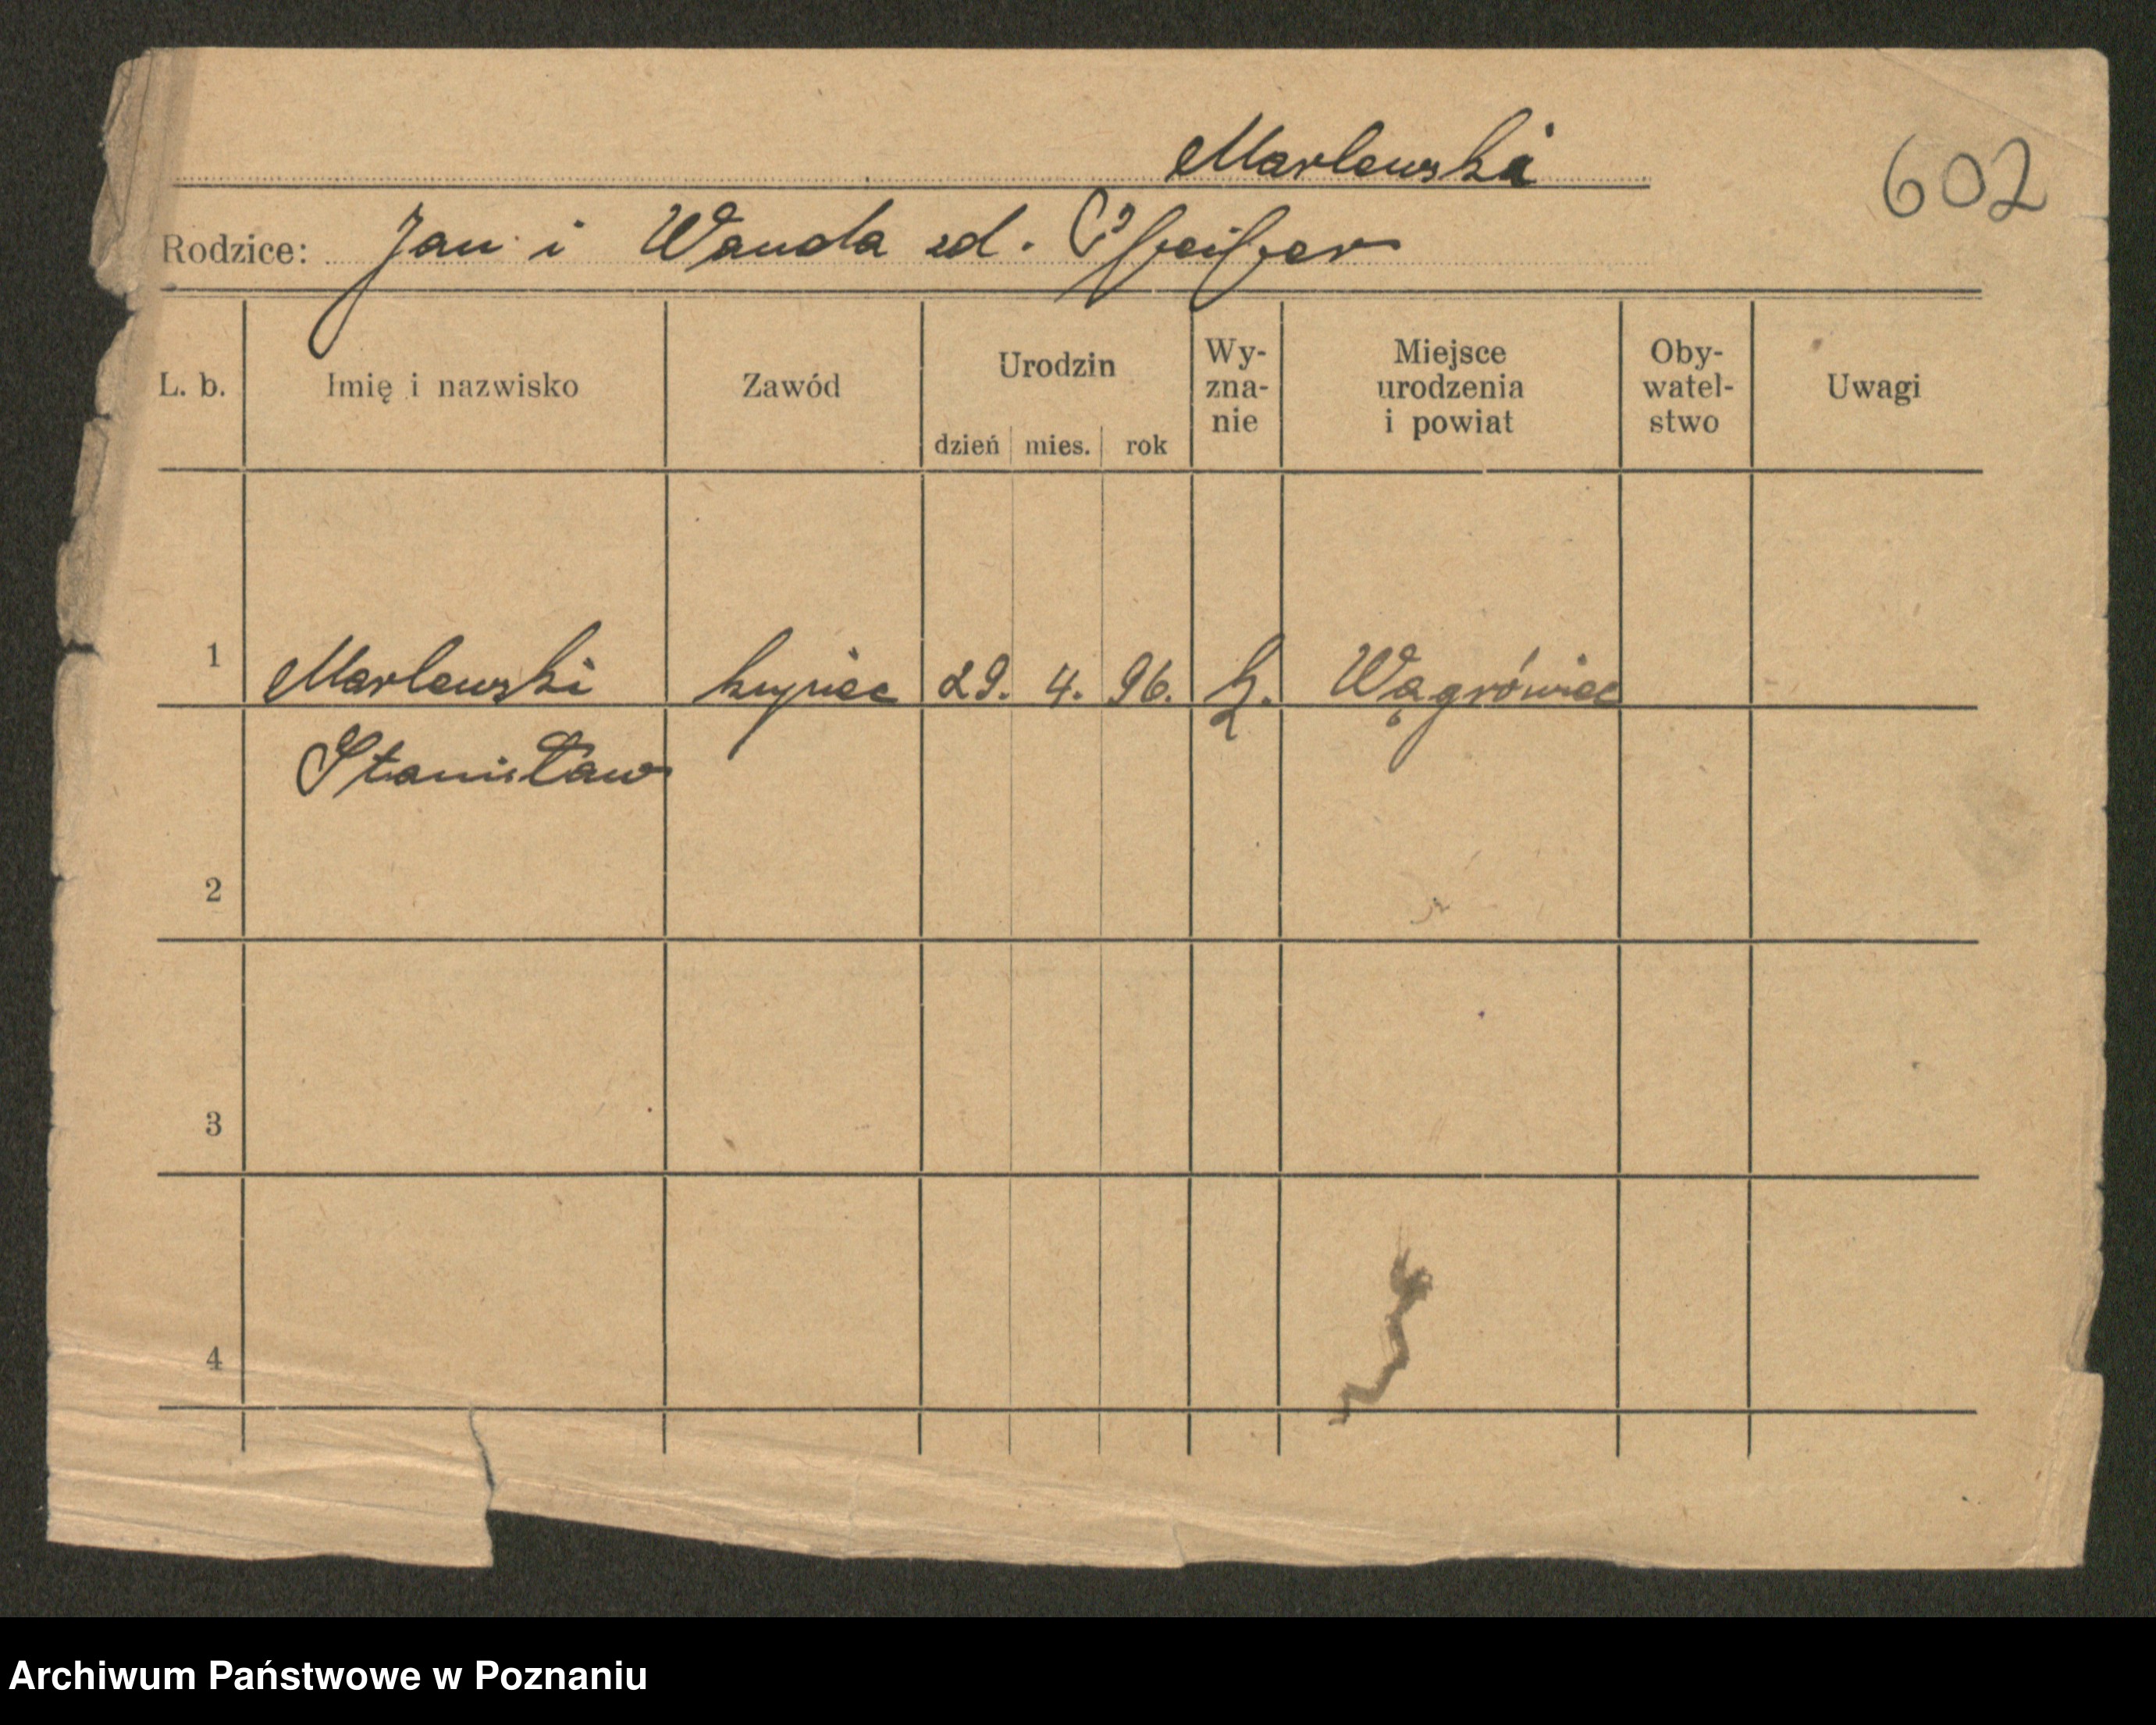 Marlewski
602
Rodzice: Jan i Wanda zd. Pfeifer
L. b. Imię i nazwisko Zawód Urodzin dzień mies. rok Wy-zna-nie Miejsce urodzenia i powiat Oby-watel-stwo Uwagi
1 Marlewski kupiec 29. 4. 96. k. Wągrówiec
Stanisław
2
3
4
Archiwum Państwowe w Poznaniu